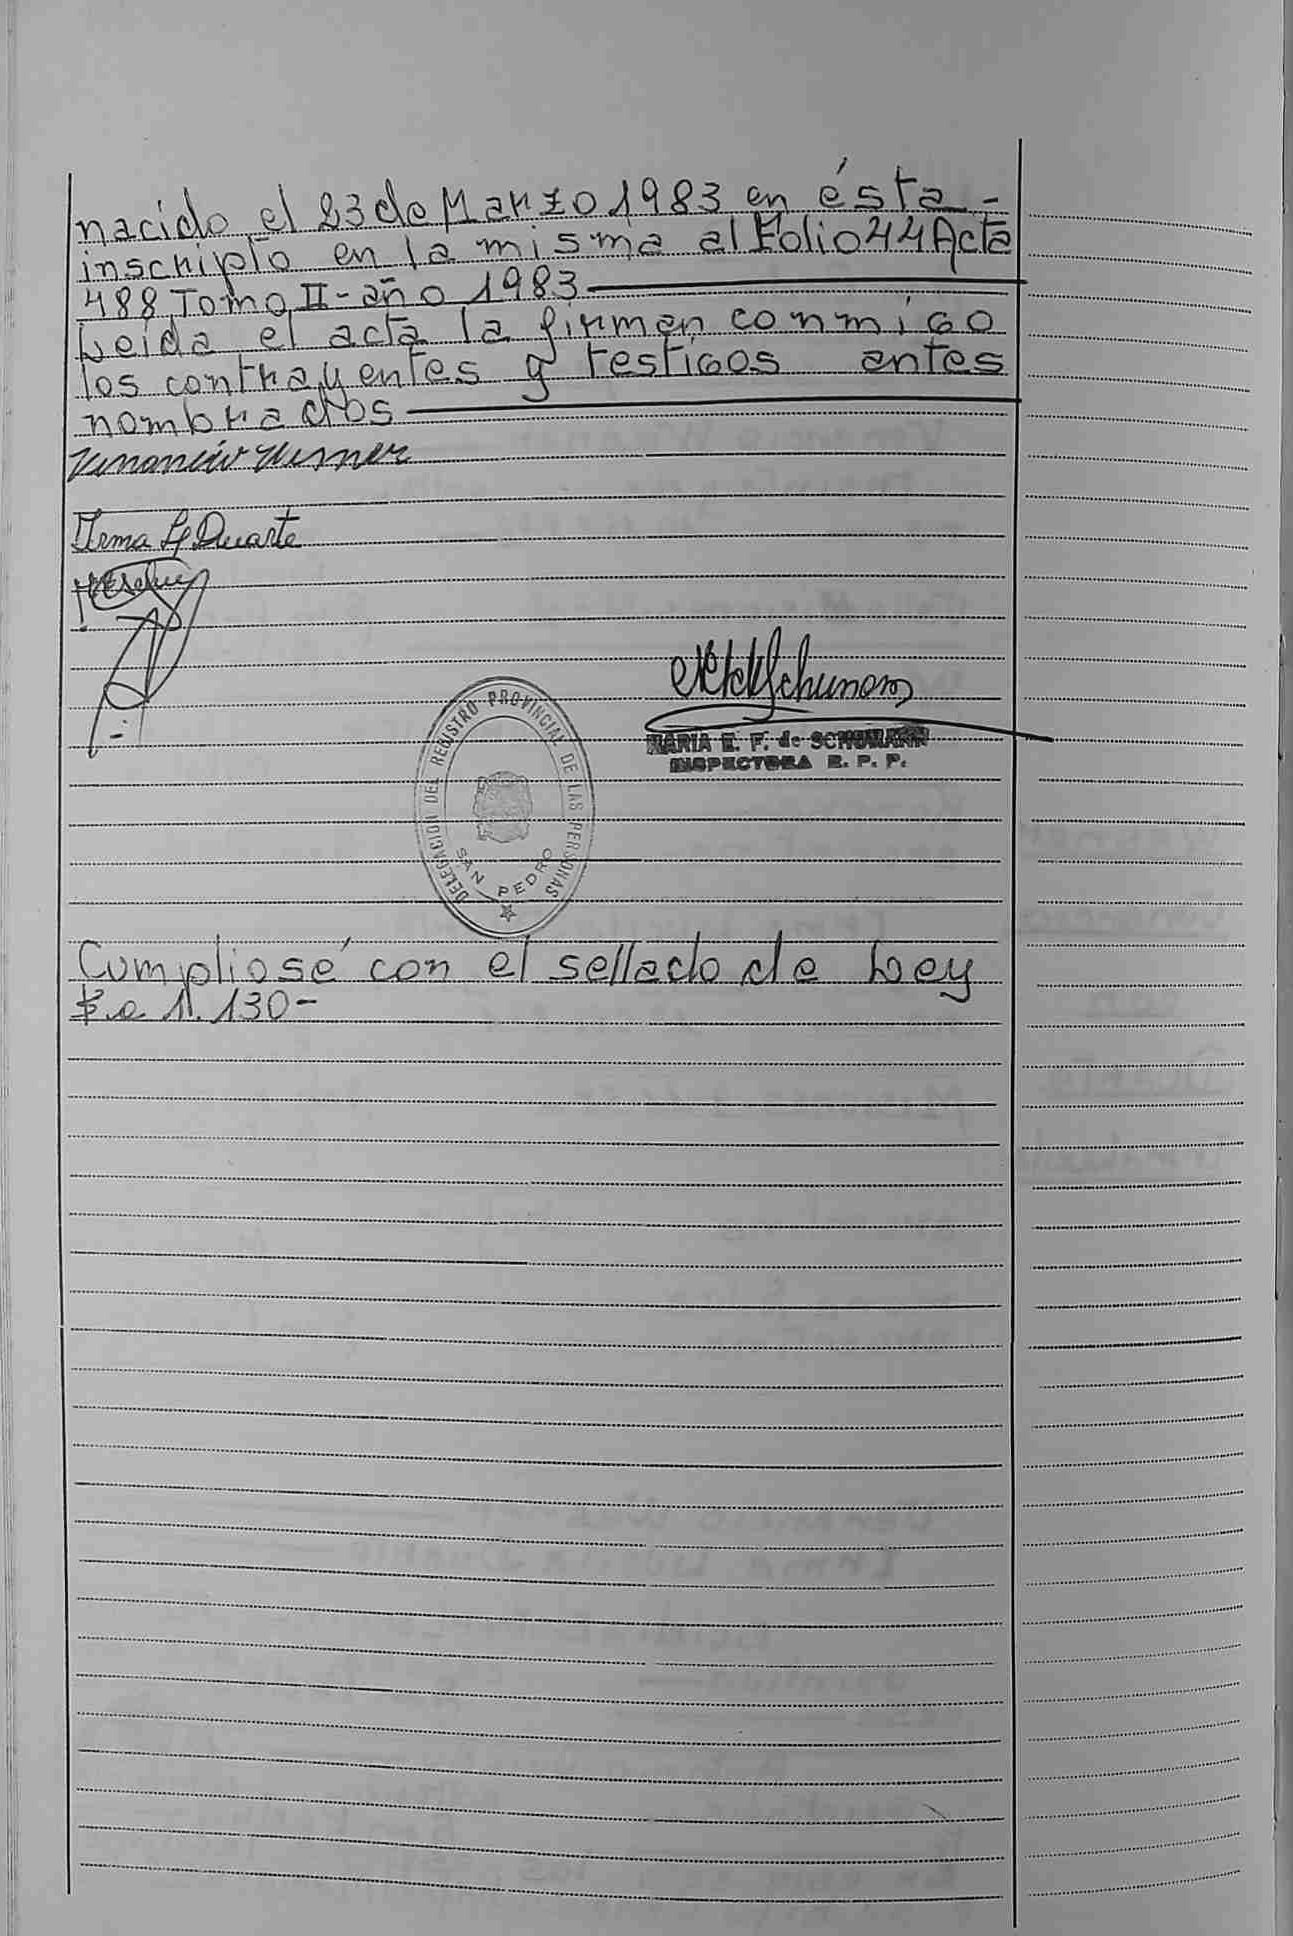 nacido el 23 de Marzo 1983 en ésta -
inscripto en la misma al Folio 44 Acta
488 Tomo II - año 1983
Leida el acta la firman conmigo
los contrayentes y testigos antes
nombrados
Venancio Wesner
Irma L Duarte
MARIA E. F. de SCHUMANN
INSPECTORA R. P. P.
DELEGACION DEL REGISTRO PROVINCIAL DE LAS PERSONAS
SAN PEDRO
Cumpliosé con el sellado de Ley
$.a 11.130-